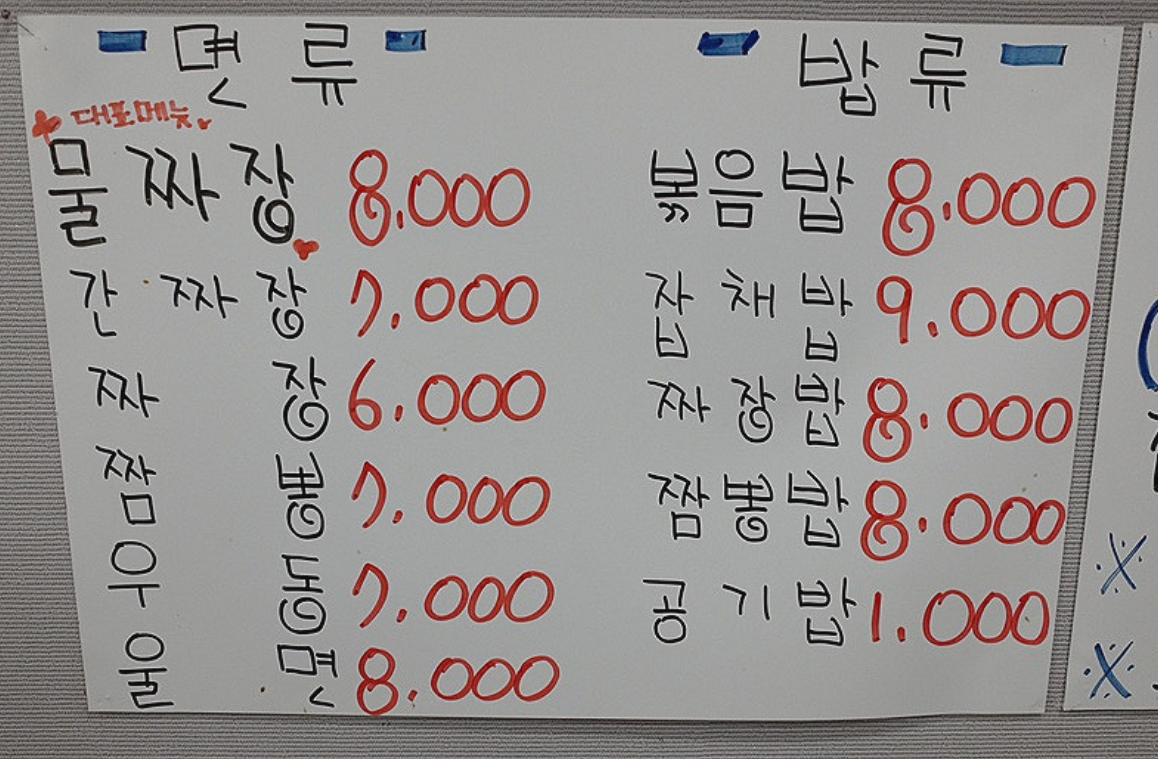 면류
대표메뉴
물짜장 8.000
간짜장 7.000
짜장 6.000
짬뽕 7.000
우동 7.000
울면 8.000
밥류
볶음밥 8.000
잡채밥 9.000
짜장밥 8.000
짬뽕밥 8.000
공기밥 1.000
※
※